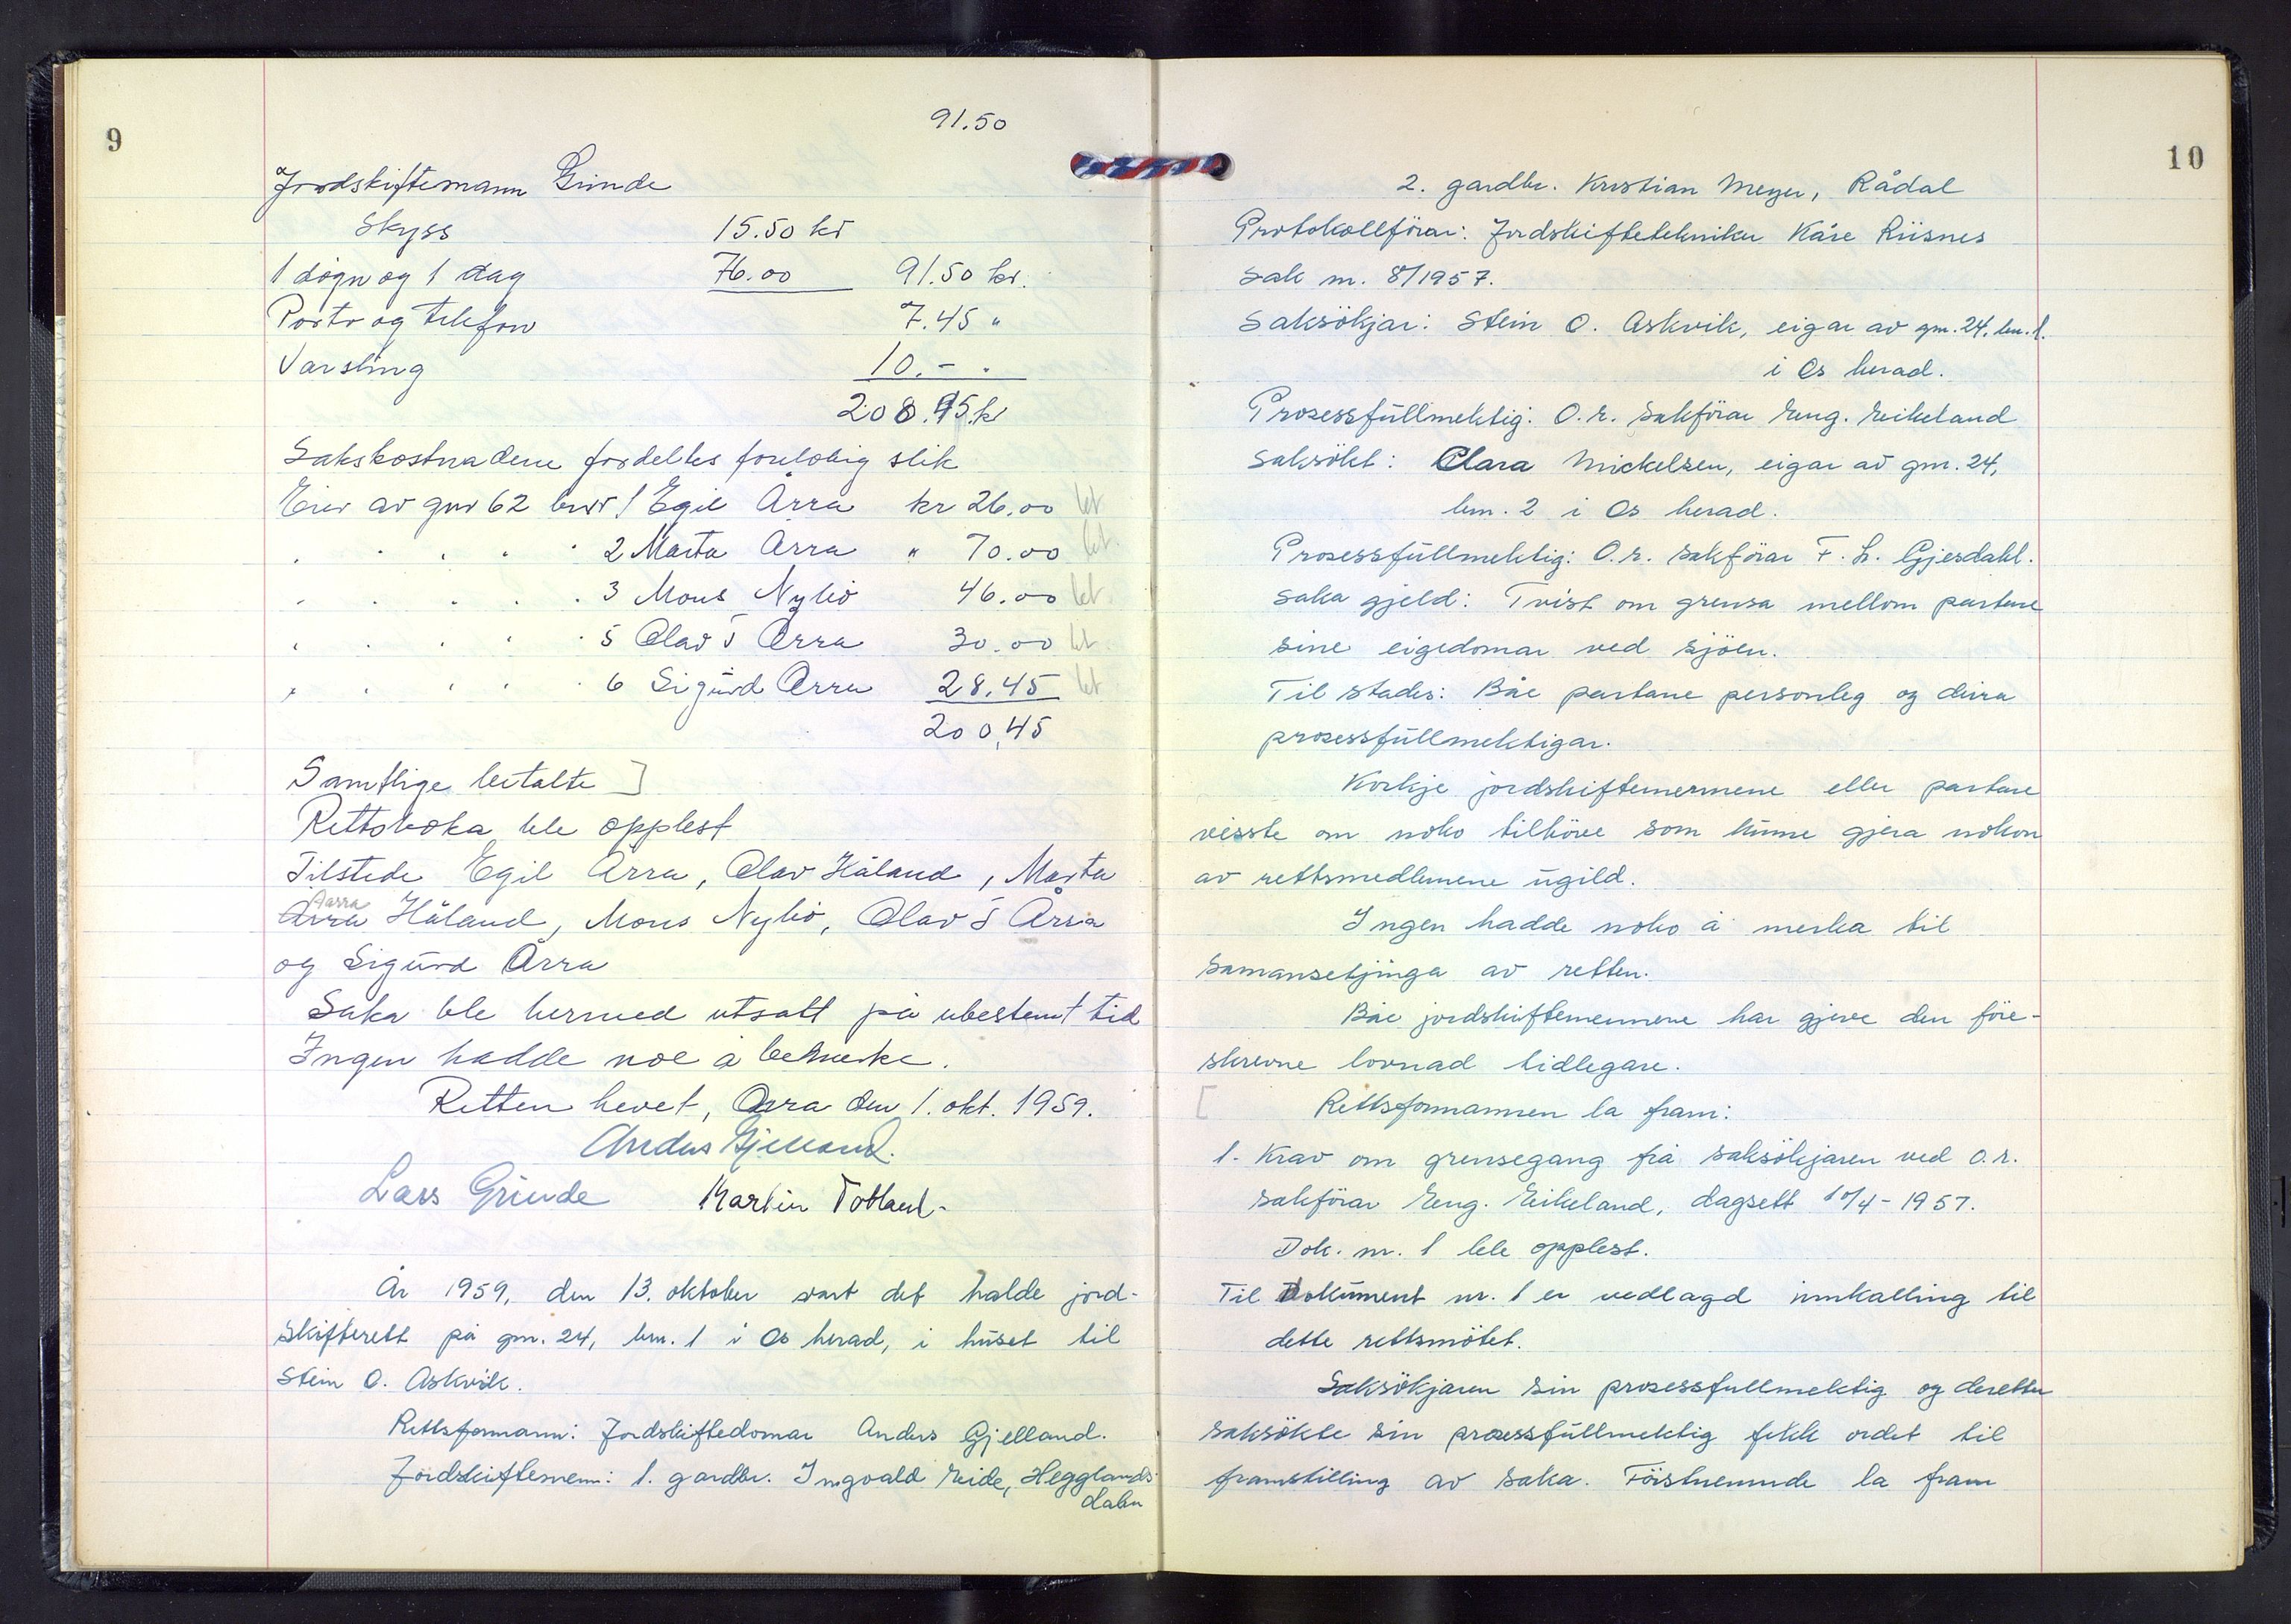 9
91.50
Jordskiftemann Grinde
Skyss 15.50 kr
1 døgn og 1 dag 76.00 91.50 kr.
Porto og telefon 7.45 "
Varsling 10.- "
208.95 kr
Sakskostnadene fordeltes foreløbig slik
Eier av gnr 62 bnr 1 Egil Årra kr 26.00 bt
" " " " " 2 Marta Årra " 70.00 bt.
" " " " " 3 Mons Nybø 46.00 bt.
" " " " " 5 Olav S Årra 30.00 bt.
" " " " " 6 Sigurd Årra 28.45 bt
200,45
Samtlige betalte ]
Rettsboka ble opplest
Tilstede Egil Årra, Olav Håland, Marta
Aarra
Årra Håland, Mons Nybø, Olav S Årra
og Sigurd Årra
Saka ble hermed utsatt på ubestemt tid
Ingen hadde noe å bemerke.
Retten hevet, Årra den 1. okt. 1959.
Anders Gjelland.
Lars Grinde Martin Totland.
År 1959, den 13. oktober vart det halde jord-
skifterett på gnr. 24, bnr. 1 i Os herad, i huset til
Stein O. Askvik.
Rettsformann: Jordskiftedomar Anders Gjelland.
Jordskiftemenn: 1. gardbr. Ingvald Eide, Hegglands-
dalen
10
2. gardbr. Kristian Meyer, Rådal
Protokollförar: Jordskiftetekniker Kåre Riisnes
Sak nr. 8/1957.
Saksökjar: Stein O. Askvik, eigar av gnr. 24, bnr. 1.
i Os herad.
Prosessfullmektig: O.r. sakförar Eng. Eikeland
Saksökt: Clara Mickelsen, eigar av gnr. 24,
bnr. 2 i Os herad.
Prosessfullmektig: O.r. sakförar F. L. Gjesdahl.
Saka gjeld: Tvist om grensa mellom partane
sine eigedomar ved sjöen.
Til stades: Båe partane personleg og deira
prosessfullmektigar.
Korkje jordskiftemennene eller partane
visste om noko tilhöve som kunne gjera nokon
av rettsmedlemene ugild.
Ingen hadde noko å merka til
samansetjinga av retten.
Båe jordskiftemennene har gjeve den före-
skrevne lovnad tidlegare.
[ Rettsformannen la fram:
1. Krav om grensegang frå saksökjaren ved o.r.
sakförar Eng. Eikeland, dagsett 10/4-1957.
Dok. nr. 1 ble opplest.
Til Dokument nr. 1 er vedlagd innkalling til
dette rettsmötet.
Saksökjaren sin prosessfullmektig og deretter
saksökte sin prosessfullmektig fekk ordet til
framstilling av saka. Förstnemnde la fram